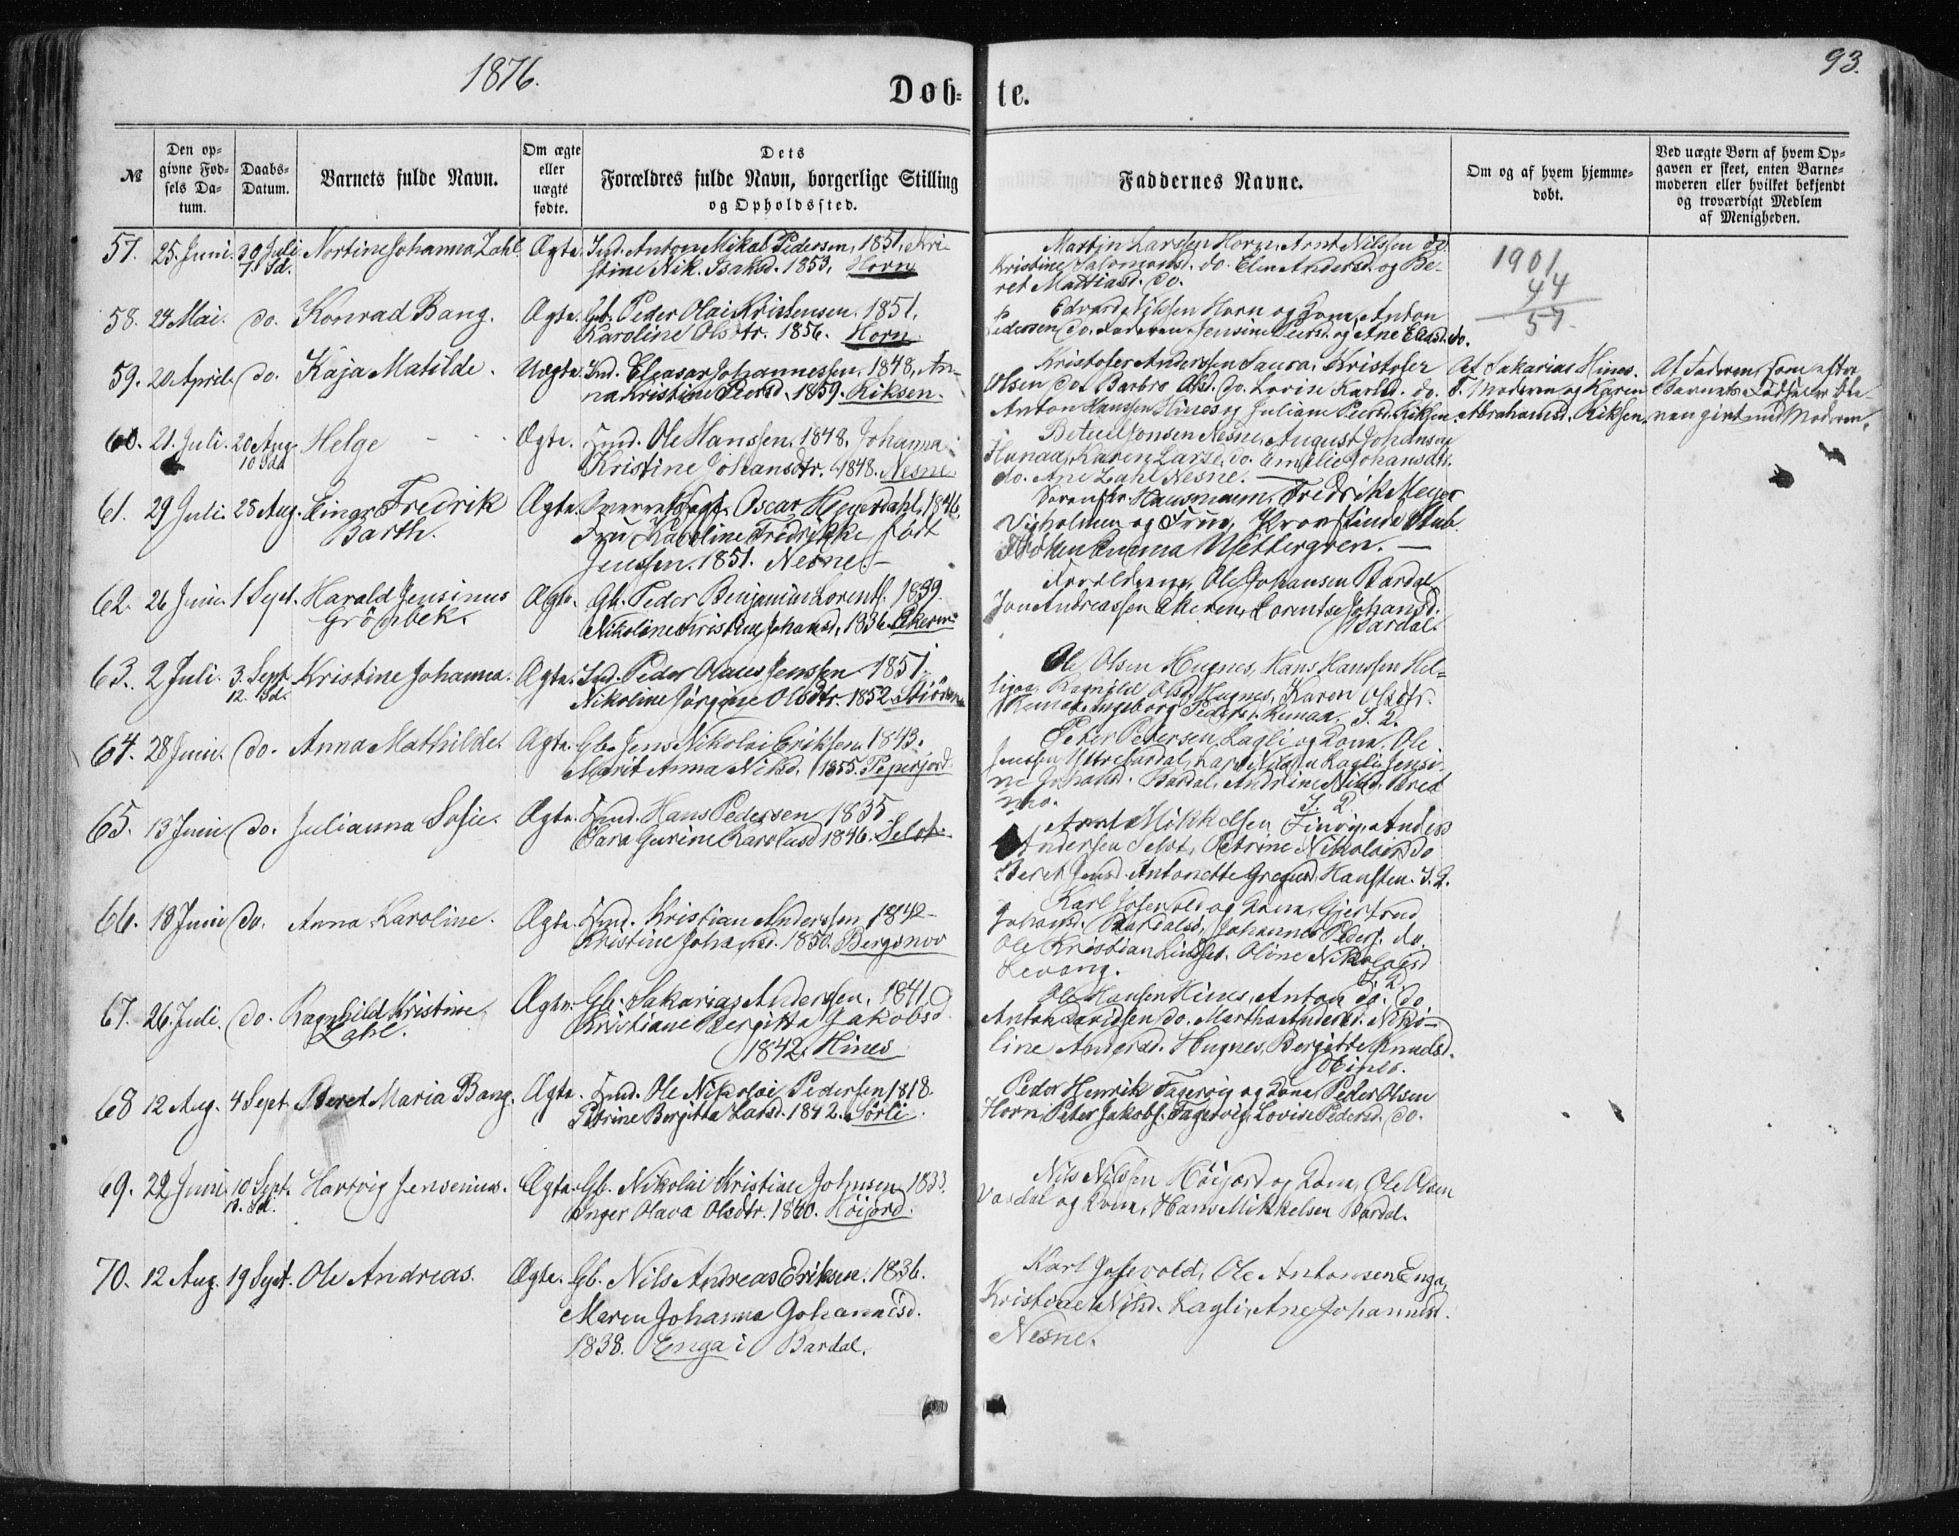 1876.
93.
Døb-
te.
№
Den op-
givne Fød-
sels Da-
tum.
Daabs-
Datum.
Barnets fulde Navn.
Om ægte
eller
uægte
fødte.
Dets
Forældres fulde Navn, borgerlige Stilling
og Opholdssted.
Faddernes Navne.
Om og af hvem hjemme-
døbt.
Ved uægte Børn af hvem Op-
gaven er skeet, enten Barne-
moderen eller hvilket bekjendt
og troværdigt Medlem
af Menigheden.
57. 25. Juni. 30 Juli Nortine Johanna Zahl Ægte. Ind. Anton Mikal Pedersen, 1851, Kri-
7. Sd. stine Nik. Isaksd. 1853. Horn
Martin Larsen Horn, Arnt Nilssen do
Kristine Salomonsd. do. Elen Andersd. og Be-
ret Mattiasd. do.
1901
44
57.
58. 24 Mai. do. Konrad Bang. Ægte. Gb. Peder Olai Kristensen. 1851.
Karoline Olsdtr. 1856. Horn
Edvard Nilsen Horn og Kona, Anton
Pedersen do. Jensine Peersd. og Ane Eliasd. do.
59. 20 April. do. Kaja Matilde. Uægte. Ind. Eleasar Johannessen, 1848, An-
na Kristine Peersd. 1859. Riksen.
Kristofer Anderssen Saura, Kristofer
Olsen do. Barbro Olsd. do. Lovise Karlsd. do.
Anton Hanssen Hines og Juliane Peersd. Riksen.
Af Sakarias Hines.
F. Moderen og Karen
Abrahamsd. Riksen.
Af Faderen, som efter
Barnets Fødsel er ble-
ven givt med Moderen.
60. 21. Juli. 20 Aug. Helge Ægte. Ind. Ole Hanssen. 1848. Johanna
10 Sd. Kristine Johansdtr. 1848. Nesne
Betuel Jonsen Nesne, August Johansen
Hunaa, Karen Larsd. do. Emelie Johansdtr.
do. Ane Zahl Nesne.
61. 29 Juli. 28 Aug. Einar Fredrik Ægte. Oscar Heyerdahl, 1846
Barth. Fru Karoline Fredrikke født
Jenssen. 1851. Nesne.
Hausmann, Fredrik Meyer
Vigholmen og Frue, Provstinde Stub
Frøken Emma Wettergren.
62. 26 Juni. 1 Sept. Harald Jensinus Ægte. Gb. Peder Benjamin Lorents. 1839.
Grønbek. Nikoline Kristine Johansd. 1836. Akeren
Forældrene, Ole Johansen Bardal
Jon Andreassen Akeren, Lorentse Johansd.
Bardal.
63. 2 Juli. 3. Sept. Kristine Johanna. Ægte. Ind. Peder Olaus Jenssen 1851
12. Sd. Nikoline Jørgine Olsdtr. 1852.
Ole Olsen Hugnes, Hans Hanssen Hel-
ligaa, Ragnild Olsd. Hugnes, Karen Olsdtr.
Remaa, Ingeborg Peders. Remaa. I. 2.
64. 28 Juni. do. Anna Mathilde. Ægte. Gb. Jens Nikolai Eriksen. 1843.
Marit Anna Nilsd. 1855. Peperjord
Peter Petersen Lagli og Kona. Ole
Jenssen Yttrebardal, Karl Nilssen Lagli, Jensi-
ne Johansd. Bardal, Andrine Nilsd.
I. 2.
65. 13 Juni. do. Julianna Sofie. Ægte. Ind. Hans Pedersen 1835.
Sara Gurine Karolusd 1846. Selot
Arnt Mikkelsen Finvig, Anders
Andersen Selot, Petrine Nikolaisd do
Beret Jensd. Antonette Gregusd. Hansten. I. 2.
66. 18 Juni do. Anna Karoline. Ægte. Ind. Kristian Anderssen 1842.
Kristine Johansd. 1850. Bergsnov
Karl Josevold og Kona, Gjertrud
Johansd. Bardalsø, Johannes Peders. do.
Ole Kristian Lindset. Oline Nikolaisd
Levang. I. 2.
67. 26. Juli. do. Ragnhild Kristine Ægte. Gb. Sakarias Anderssen. 1841. og
Zahl. Kristiane Bergitta Jakobsd
1842. Hines
Ole Hansen Hines, Anton do. do.
Anton Davidsen do. Martha Andersd. Niko-
line Andersd. Hugnes, Bergitte Knudsd.
Hines.
68 12 Aug. 4 Sept. Beret Maria Bang. Ægte. Ind. Ole Nikolai Pedersen 1818.
Petrine Birgitta Larsd. 1842. Sørli.
Peder Henrik Fagervig og Kona Peder Olsen
Horn, Peter Jakobs. Fagervig, Lovise Pedersd. do.
69. 22 Juni 10 Sept. Hartvig Jensenius. Ægte. Gb. Nikolai Kristian Johnsen 1833.
13. Sd. Inger Olava Olsdtr. 1840. Høijord.
Nils Nilssen Høijord og Kona, Ole Olsen
Bardal og Kona, Hans Mikkelsen Bardal.
70. 12 Aug. 19 Sept. Ole Andreas. Ægte. Gb. Nils Andreas Eriksen. 1836.
Maren Johanna Johannesd.
1838. Enga i Bardal.
Karl Josevold, Ole Antonsen Enga,
Kristiane Nilsd. Lagli, Ane Johannesd.
Nesne.